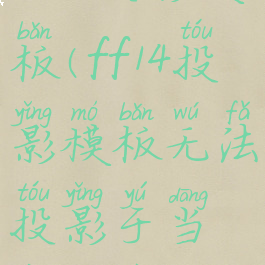 bǎn tóu
板(ff14投
yǐng mó bǎn wú fǎ
影模板无法
tóu yǐng yú dāng
投影于当